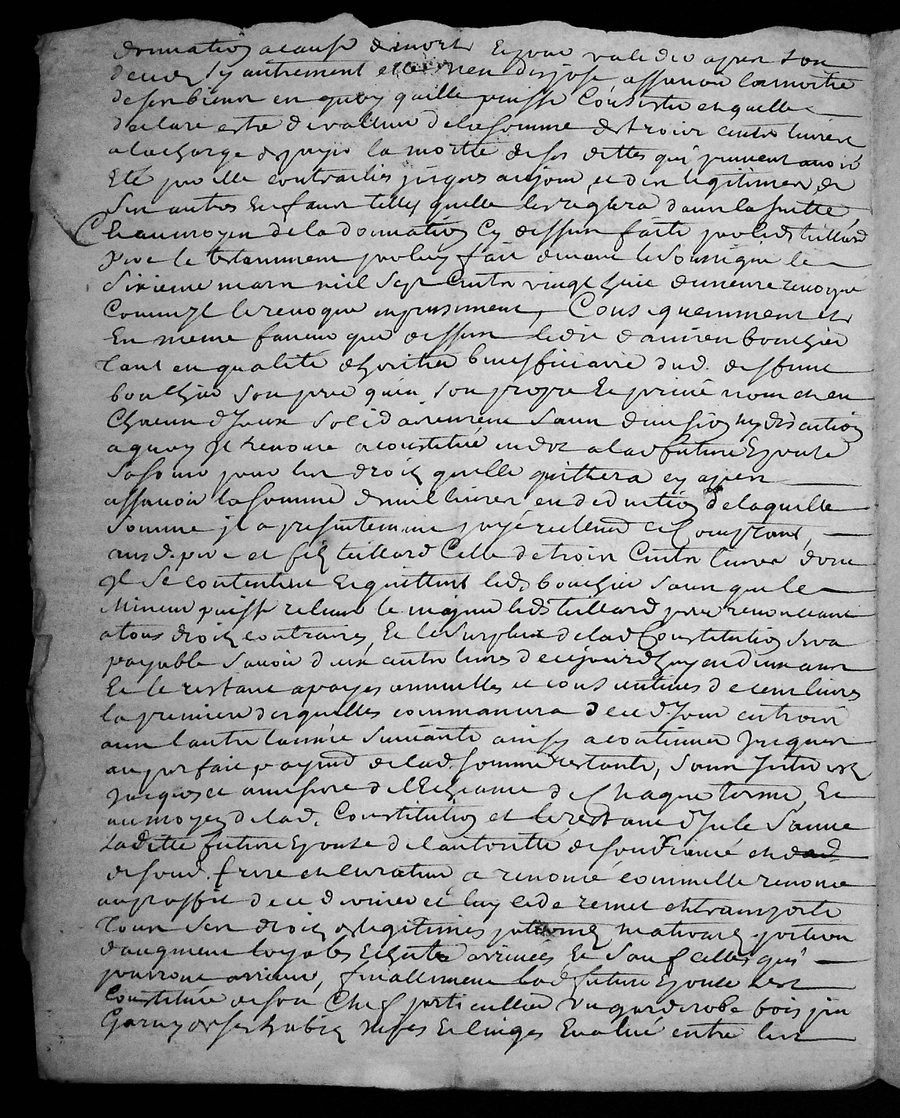 donnation a cause de mort Et pour valoir apres son
deces sy autrement elle n'en dispose assavoir la moitié
de ses biens en quoy quelle puisse Consister et quelle
declare estre de valleur de la somme de trois cents livres
a la charge de payer la moitié de ses dettes qui peuvent avoir
Eté par elle contractés jusques au jour, et des legitimes de
Ses autres Enfans telles quelle les reglera dans la suitte,
Et au moyen de la donnation Cy dessus faitte par led. tullard
pere le testamment par luy fait devant le Soussigné le
Sixieme mars mil Sept Cents vingt demeure revoqué
Comme il le revoque expressement, Consequemment et
En meme faveur que dessus led. damien bouchier
tant en qualité d'heritier beneficiaire dud. deffunt
bouchier Son pere qu'en Son propre Et privé nom et en
Chacun d'Iceux Solidairement Sans division ny discution
a quoy Il renonce a constitué en dot a lad. future Epouse
Sa soeur pour les droits quelle quittera cy apres
assavoir la Somme de mil livres en deduction de laquelle
Somme il a presentement payé reellement et Comptant,
aud. pere et fils tullard Celle de trois Cents livres dont
Il Se contentent Et quittent led. bouchier Sans que le
Mineur puisse relever le majeur led. tullard pere renonceant
a tous droits contraires, Et le Surplus de lad. Constitution Sera
payable Savoir deux cents livres de cejourdhuy en deux ans
Et le restant a payes annuelles et consecutives de cent livres
la premiere desquelles commancera de ce d. Jour en trois
ans l'autre lannée Suivante ainsy a continuer Jusques
au parfait payement de lad. Somme restante, Sans Interest
Jusques et a mesure de l'Echeance de Chaque terme, Et
au moyen de lad. Constitution et le restant d'Icelle Sauve
Laditte future Epouse de lautorité de Son fiancé et
de Sond. frere et Curateur a renoncé comme elle renonce
au proffit de ce dernier et luy cede remet et transporte
tous Ses droits de legitimes paternels maternels portion
d'augment loyales Echutes arrivées Et Sauf celles qui
pourront arriver, finallement lad. future Epouse Sest
Constituée de Son Chef particullier Un garderobe bois pin
Garny de Ses habits nipes Et linges Evalué entre les